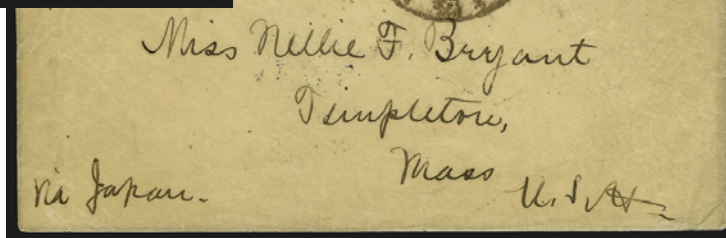 Miss Nellie F. Bryant
Templeton,
Mass
U.S.A.
via Japan.